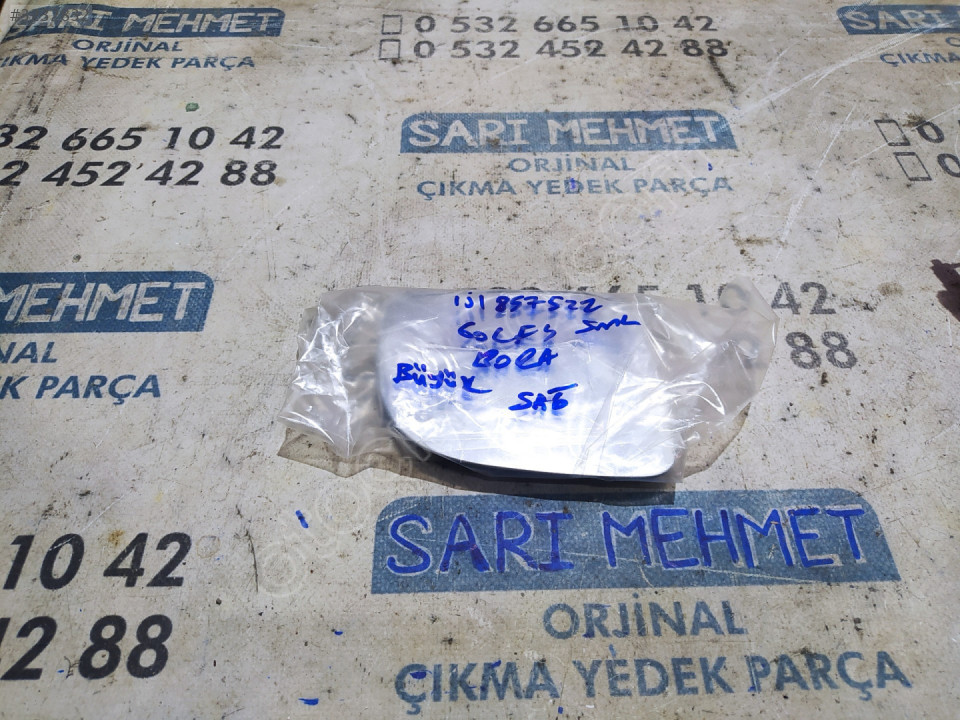 SARI MEHMET
ORJİNAL
ÇIKMA YEDEK PARÇA
0 532 665 10 42
0 532 452 42 88
32 665 10 42
2 452 42 88
SARI MEHMET
ORJİNAL
ÇIKMA YEDEK PARÇA
MEHMET
INAL
DEK PARÇA
10 42
88
1J1 857522
GOLF4
BORA
BÜYÜK
SAĞ
10 42
42 88
SARI MEHMET
ORJİNAL
ÇIKMA YEDEK PARÇA